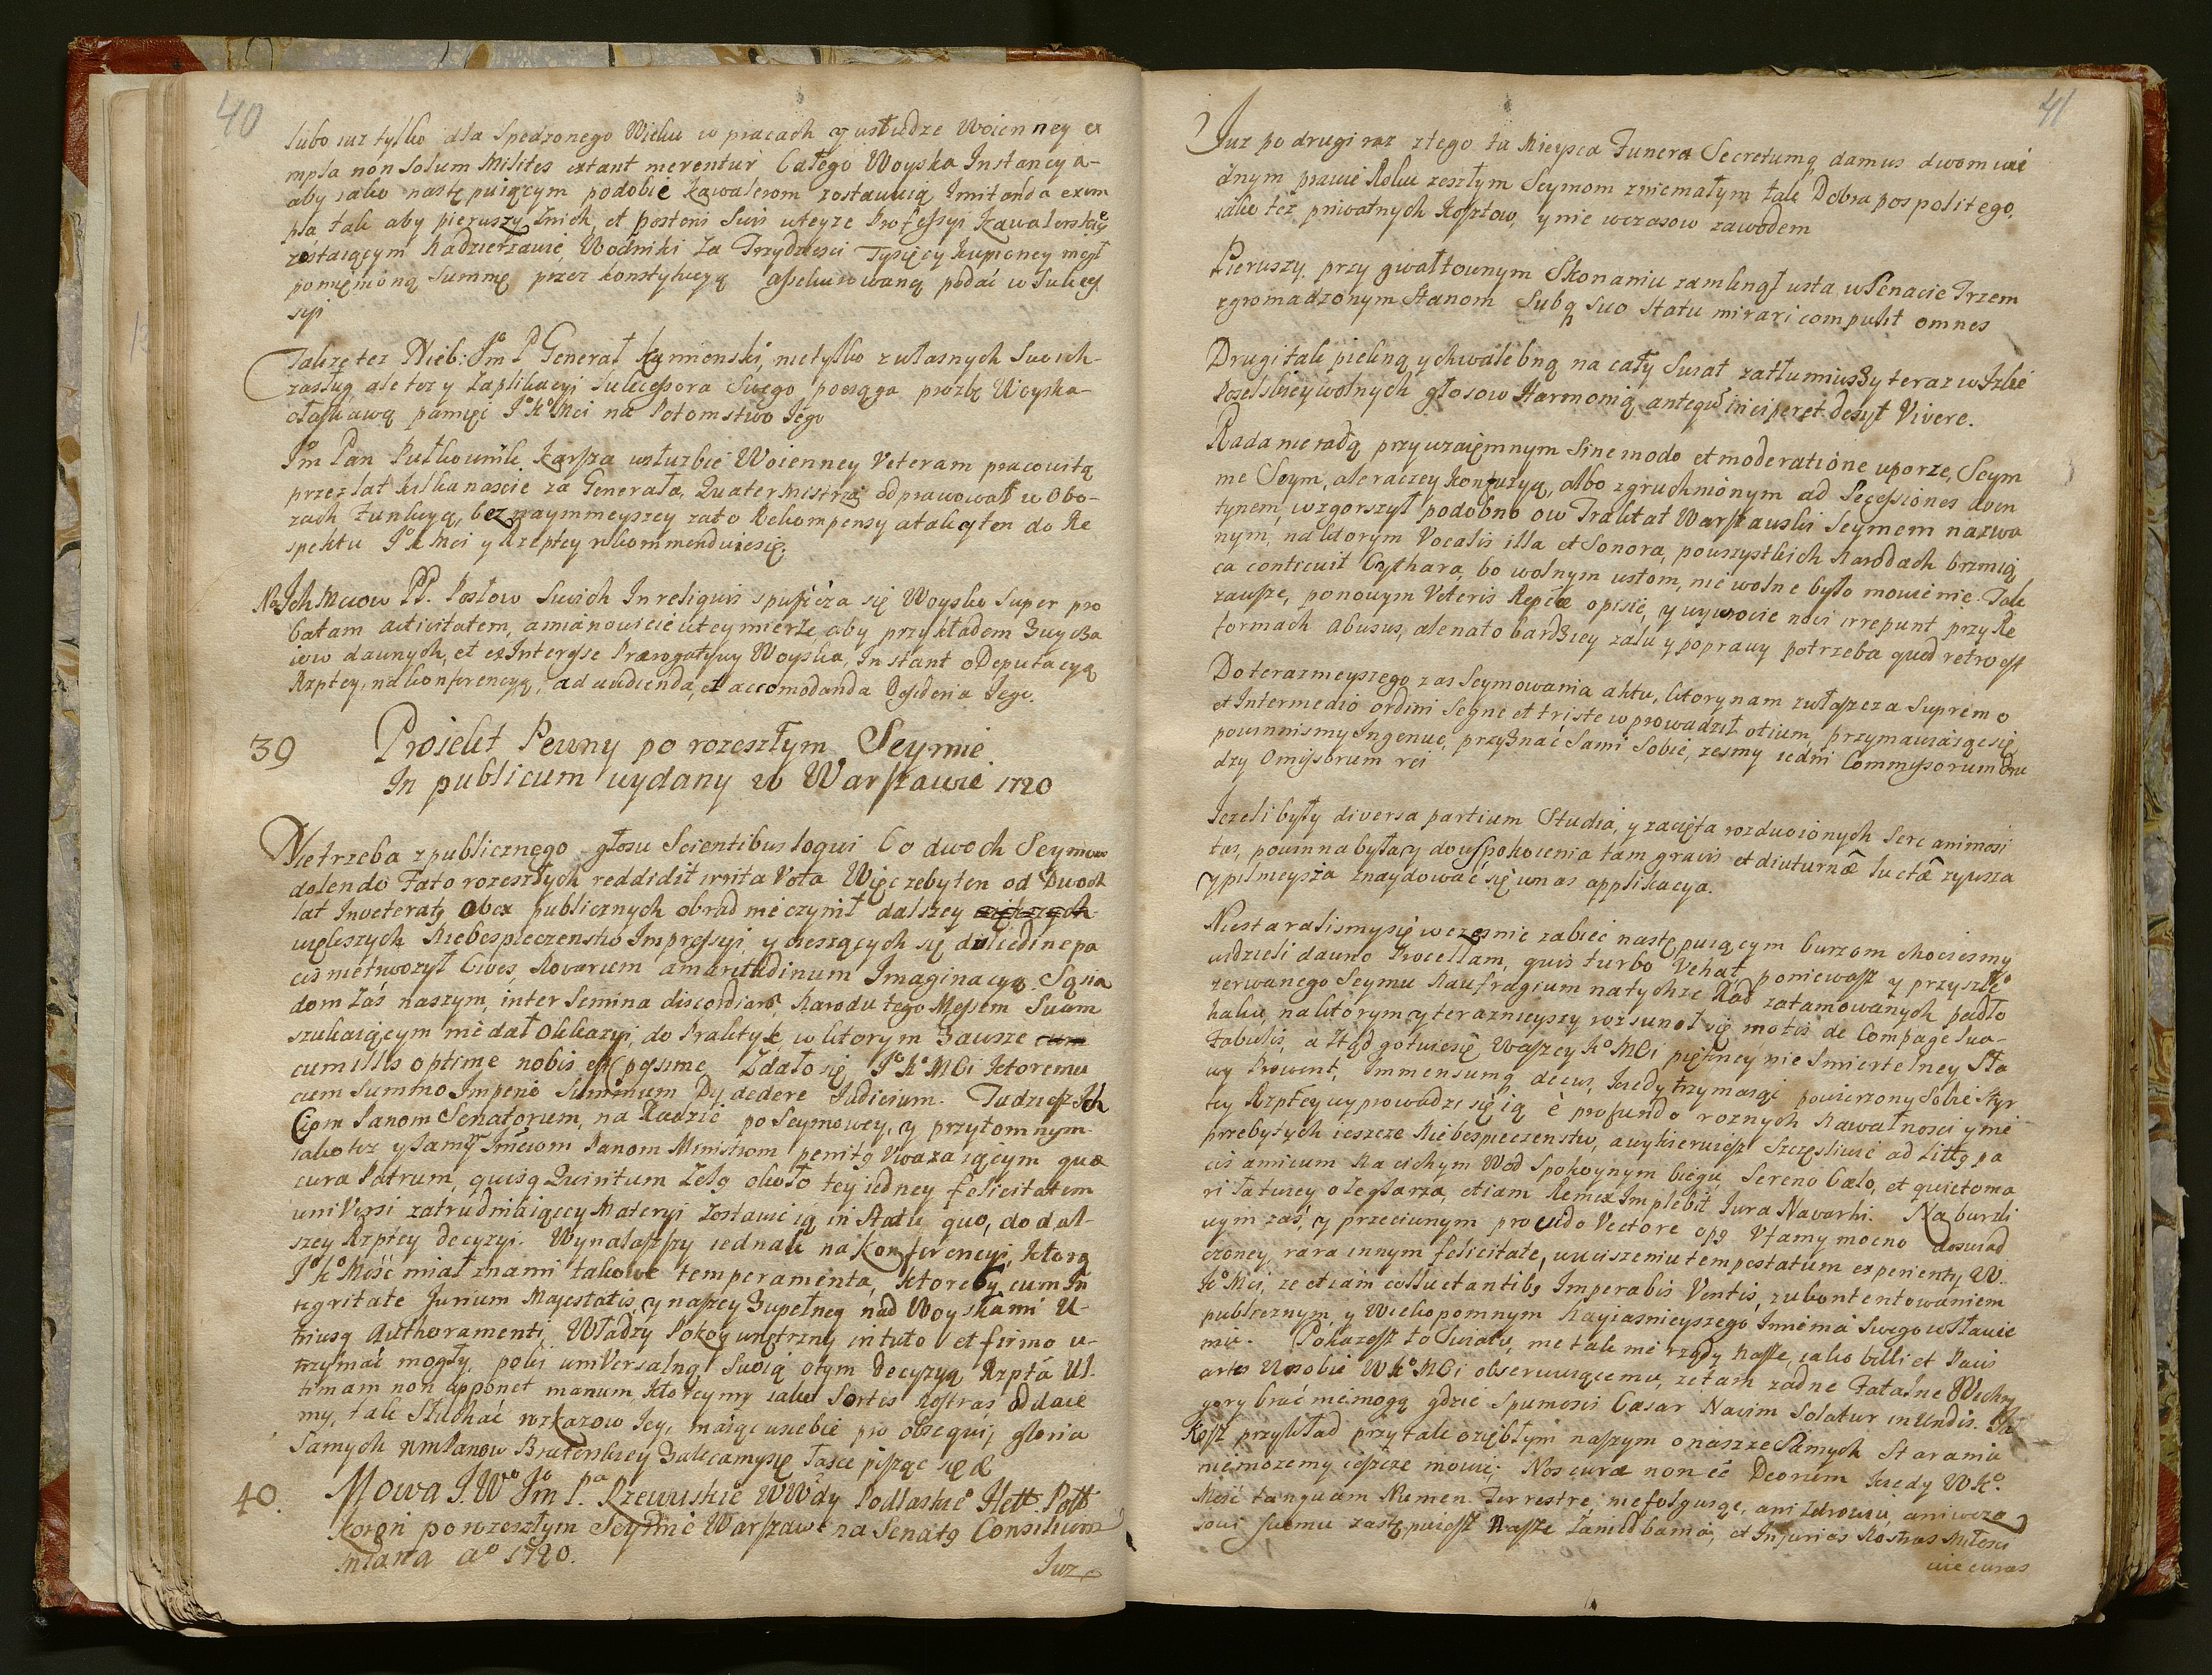 40
lubo iuz tylko dla spedzonego Wieku w pracach y usłudze Woienney ex
mpla non solum Milites extant merentur Całego Woyska Instancya
aby iako następuiącym podobie kawalerom zostawuią Imitanda exem
pla tak aby pierwszy znich et posteris suis uteyze Professyi Kawalerskiey
zostaiącym Nadzierzawie Wodniki za Trzydziesci Tysięcy kupioney
pomięnioną Summę przez konstytucyą assekurowaną podać w Sukces
syi
Takze tez Nieb: Jm P Generał Kamienski, nietylko z własnych Swoich
zasług ale tez y Zaplikacyi Sukcessora Swego posiąga prozbę Woyska
ołaskawą pamięć J K Mci na Potomstwo Jego
Jm Pan Pułkownik Karsza wsłuzbie Woienney Veteran pracowitą
przez lat kilkanascie za Generała Quatermistrza odprawował w Obo-
zach funkcyą, bez naymnieyszey zato Rekompensy atak y ten do Re
spektu J K Mci y Rzeptey rekommenduie się.
Na Ich Mciow PP. Posłow Swoich In reliquis spuszcza się Woysko super pro
batam activitatem, amianowicie wtey mierze aby przykładem Zwycza
iow dawnych, et ex Interesse Prærogatywy Woyska, Instant o Deputacyą
Rzptey, na konferencyą, ad audienda, et accomodanda Desideria Jego.
39 Proiekt Pewny po rozeszłym Seymie
In publicum wydany w Warszawie 1720
Nietrzeba zpublicznego głosu Scientibus loqui Co dwoch Seymow
dolendo Fato rozeszłych reddidit irrita Vota Więc zeby ten od Dwoch
lat Inveteratę obex publicznych obrad nieczynił dalszey
większych Niebespieczenstw Impressyi y cieszących się
cis nietworzył Cives Novarum amaritudinum Imaginacyą. Sąsia
dom zaś naszym, inter Semina discordiarum Narodu tego Messem Suam
szukaiącym niedał Okkazyi, do Praktyk w ktorym Zawsze
cum illis optime nobis est pessime Zdało się J K Mci ktoremu
cum summo Imperio Summum Dy dedere Iudicium. Tudziesz Ich
Ciom Panom Senatorum, na Radzie po Seymowey, y przytomnym
iakotez y Samym Imciom Panom Ministrom penitq Uwazaiącym quæ
cura Patrum, quisq Quiritum Zelq około tey iedney felicitatem
uniVersi zatrudniaiącey Materyi Zostawić ią in Statu quo, do dal-
szey Rzptey decyzyi. Wynalazszy iednak na Konferencyi, ktorą
J K Mość miał znami takowe temperamenta, ktoreby cum In
tegritate Jurium Majestatis, y naszey Zupełney nad Woyskami U-
triusq Authoramenti, Władzy Pokoy wnętrzny in tuto et firmo u-
trzymać mogły, poki uniVersalną Swoią otym Decyzyą Rzpta Ul-
timam non apponet manum, ktoreymy iako Sortes Nostras oddaie
my, tak Słuchać rozkazow Iey, maiąc usiebie pro obsequij gloria
Samych WmPanow Braterskiey Zalecamysię Łasce pisząc się &
40. Mowa J. W Jm P. Rzewuskie WWdy Podlaskie Hett. Poll
Koron po rozeszłym Seymie Warszaw na Senatq Consilium
miana Ao 1720.
Juz
41
Juz po drugi raz ztego tu Mieysca Funera Secretumq damus dwom ie
dnym prawie Roku zeszłym Seymom zniemałym tak Dobra pospolitego,
iako tez priwatnych Kosztow, y nie wczasow zawodem
Pierwszy przy gwałtownym Skonaniu zamknął usta w Senacie Trzem
zgromadzonym Stanom Subq suo statu mirari compulit omnes
Drugi tak piękną y chwalebną na cały Swiat zatłumiwszy teraz w Izbie
Poselskiey wolnych głosow Harmonią, antequam inciperet desyt Vivere.
Rada nieradą przy wzaiemnym sine modo et moderatione uporze, Seym
nie Seym, ale raczey konfuzyą, albo zgruchnionym ad Secessiones Aven
tynem, wzgorszył podobno ow Traktat Warszawski Seymem nazwa
nym, na ktorym Vocalis illa et Sonora, powszystkich Narodach brzmią
ca conticuit Cythara, bo wolnym ustom, nie wolne było mowienie. Tak
zawsze, ponowym Veteris Repcæ opisie, y wywrocie novi irrepunt przy Re
formach abusus, ale nato bardziey zalu y poprawy potrzeba quod retro est
Do terazmeyszego zas Seymowania aktu, ktory nam zwłaszcza Supremo
et Intermedio ordini segne et triste wprowadził otium, przymawiaiąc się
powinnismy Ingenue, przyznać Sami Sobie, zesmy iedni Commissorum dru
dzy Omissorum rei
Jezeli były diversa partium Studia, y zacięta rozdwoionych Serc animosi
tas, powinna była y do uspokoienia tam gravis et diuturnæ luctæ zywsza
y pilnieysza znaydować się unas applikacya.
Niestaralismy się wczesnie zabiec następuiącym burzom chociesmy
widzieli dawno Procellam, quis turbo Vehat, poniewasz y przyszłe
zerwanego Seymu Naufragium natychze Rad zatamowanych padło
haku, na ktorym y teraznieyszy rozsunoł się motis de Compage sua
Tabulis, a ztąd gotuiesię Waszey K Mci piękney nie Smiertelney Sła
wy Provent, Immensumq decus, kiedy trzymaiąc powierzony Sobie Styr
tey Rzptey wyprowadzi się ią è profundo roznych Nawałnosci y nie
przebytych ieszcze Niebespieczenstw, a wykieruiesz Szczęsliwie ad Littq pa
cis amicum Na cichym Wod Spokoynym biegu, Sereno Cælo, et quieto ma
ri Łatwiey o zeglarza, etiam Remex Implebit Jura Navarhi. Na burzli
wym zaś y przeciwnym provido Vectore opq Ufamy mocno doswiad
czoney rara innym felicitate, wuciszeniu tempestatum experientij W.
K Mci, ze etiam colluctantibq Imperabis Ventis, zukontentowaniem
publicznym, y Wiekopomnym Nayiasnieyszego Imienia Swego wsławie
niu. Pokazesz to Swiatu, nie tak nie rządy nasze, iako belli et Pacis
artes W osobie W K Mci obserwuiącemu, ze tam zadne Fatalne Wichry
gory brać niemogą gdzie Spumosis Cæsar Navim Solatur in Undis.
Kosz przykład przy tak oziębłym naszym onasze Samych Staraniu
niemozemy ieszcze mowić; Nos curæ non eê Deorum kiedy W K.
Mość tanquam Numen Terrestre, niefolguiąc, ani Zdrowiu, ani wcza
sowi swemu zastępuiesz Nasze Zaniedbania, et Injurias Nostras Miłosci
wie curas